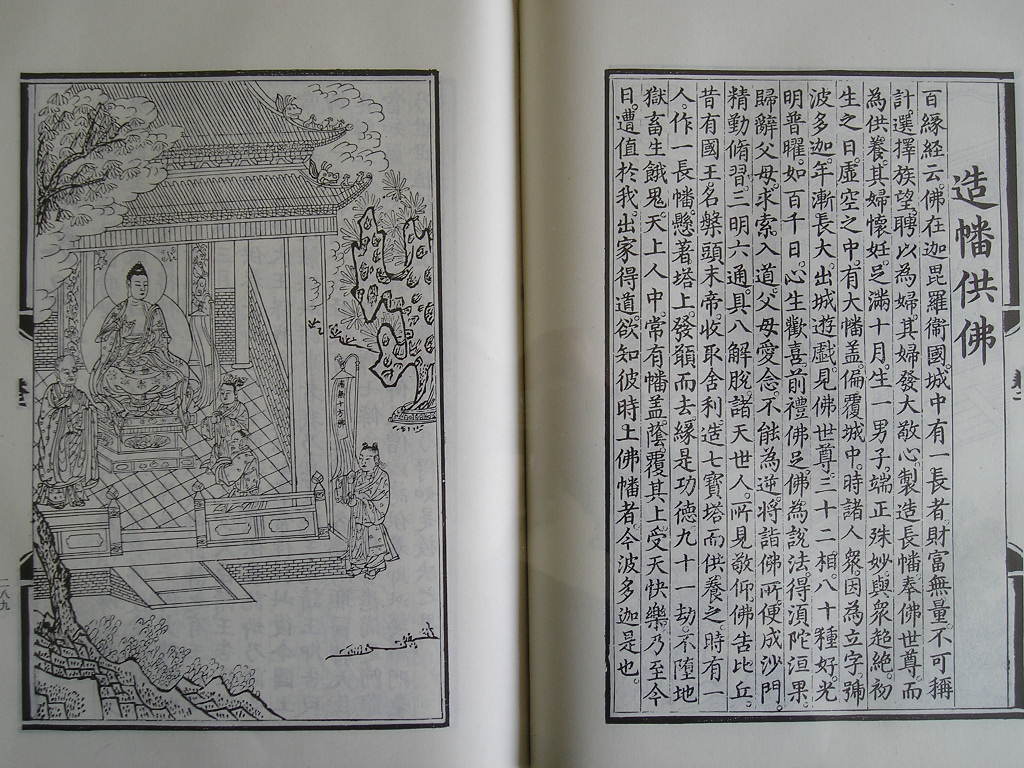 造幡供佛
百緣經云。佛在迦毘羅衞國。城中有一長者。財富無量。不可稱
計。選擇族望。聘以為婦。其婦發大敬心。製造長幡。奉佛世尊。而
為供養。其婦懷妊。足滿十月。生一男子。端正殊妙。與衆超絕。初
生之日。虛空之中。有大幡盖。徧覆城中。時諸人衆。因為立字。號
波多迦。年漸長大。出城遊戲。見佛世尊。三十二相。八十種好。光
明普曜。如百千日。心生歡喜。前禮佛足。佛為說法。得湏陀洹果。
歸辭父母。求索入道。父母愛念。不能為逆。將詣佛所。便成沙門。
精勤脩習。三明六通。具八解脫。諸天世人。所見敬仰。佛告比丘。
昔有國王。名槃頭末帝。收取舍利。造七寶塔。而供養之。時有一
人。作一長幡。懸著塔上。發願而去。緣是功德。九十一劫。不墮地
獄畜生餓鬼。天上人中。常有幡盖。蔭覆其上。受天快樂。乃至今
日。遭值於我。出家得道。欲知彼時上佛幡者。今波多迦是也。
南無十方佛
二八九